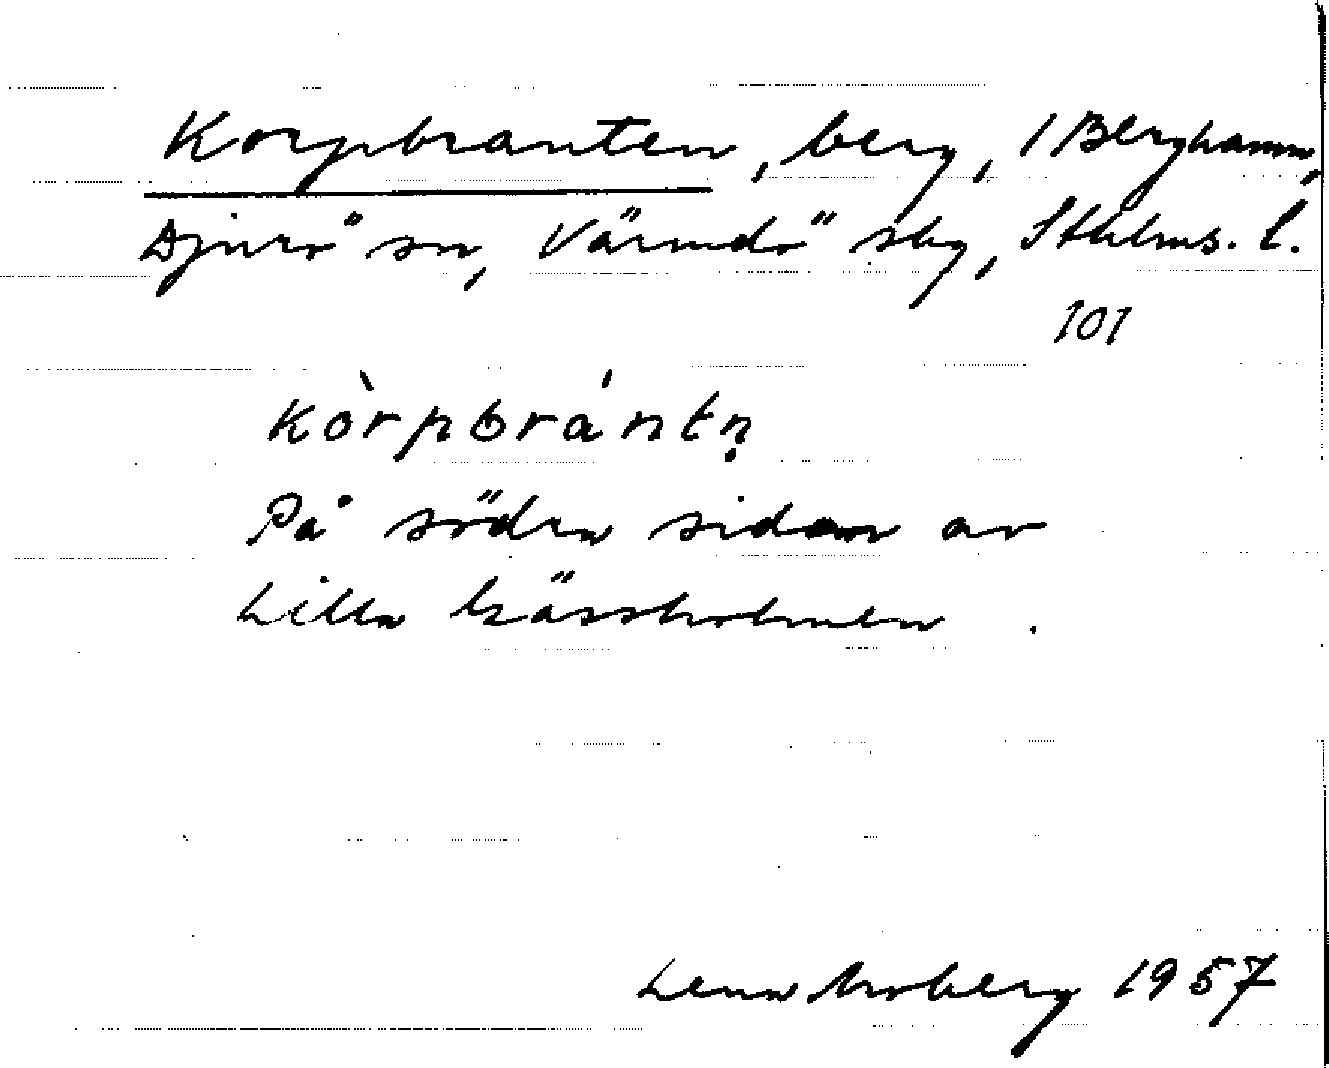 Korpbranten, berg, 1 Berghamn,
Djurö sn, Värmdö skg, Sthlms. l.
101
kòrpbrántṇ
På södra sidan av
Lilla Gässholmen.
Lena Moberg 1957